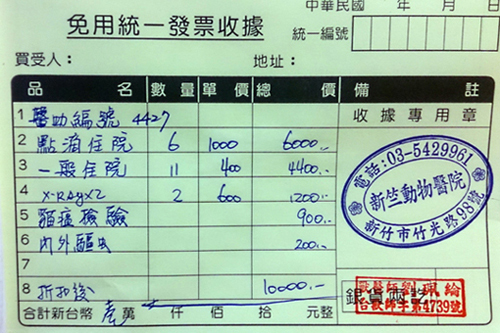 中華民國 年 月 日
免用統一發票收據
統一編號
買受人： 地址：
品名 數量 單價 總價 備註
1 醫助編號 4427 收據專用章
2 點滴住院 6 1000 6000.—
3 一般住院 11 400 4400.—
4 X-RAYX2 2 600 1200.—
5 貓瘟檢驗 900.—
6 內外驅虫 200.—
7
8 折扣後 10000.—
銀貨兩訖
合計新台幣 壹萬 仟 佰 拾 元整
電話：03-5429961
新竺動物醫院
新竹市竹光路98號
獸醫師劉
師字第4739號